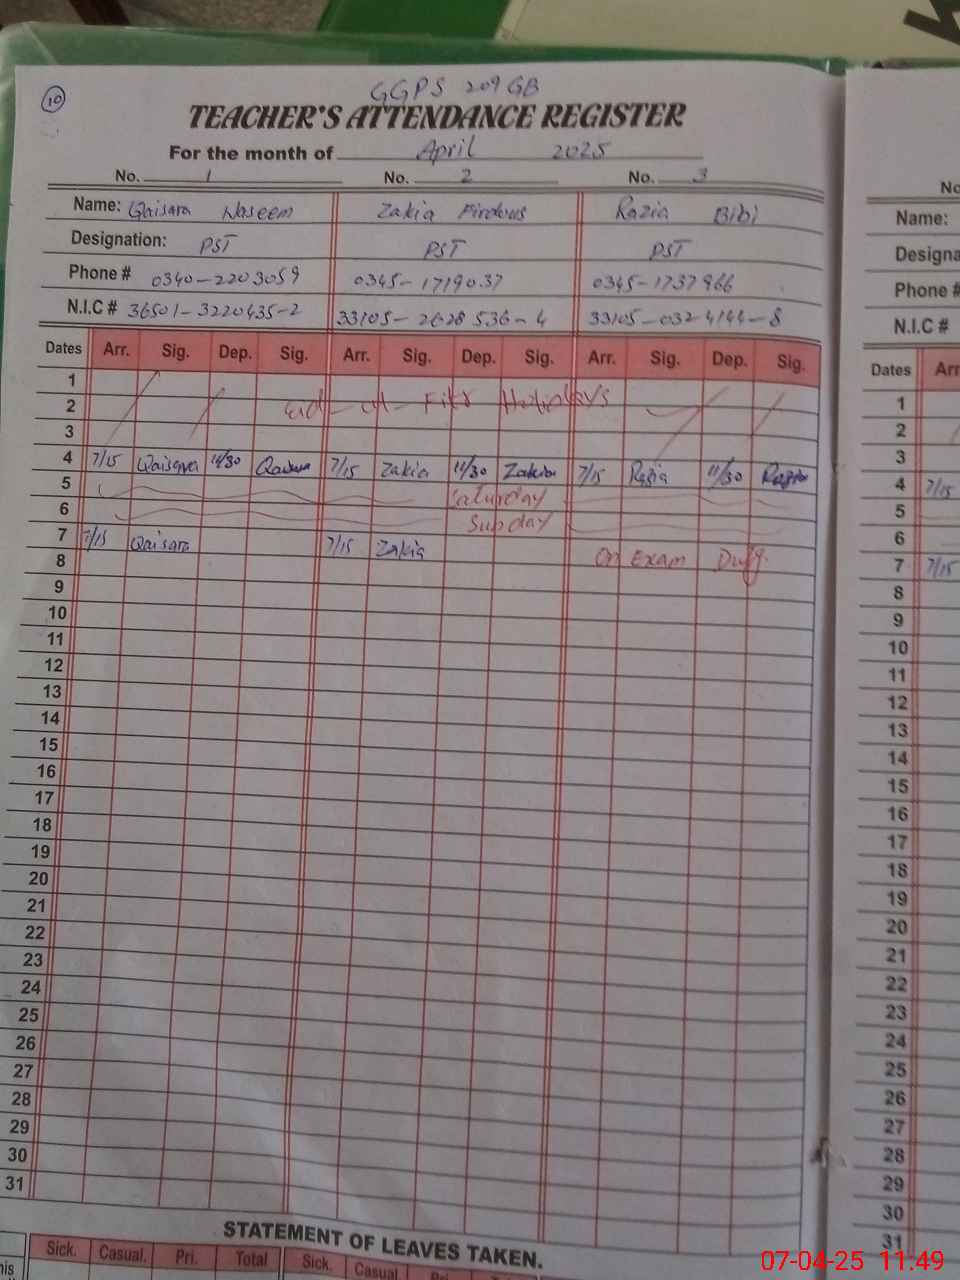 10
GGPS 209 GB
TEACHER'S ATTENDANCE REGISTER
For the month of April 2025
No. 1 No. 2 No. 3
Name: Qaisara Naseem Zakia Firdous Razia Bibi
Designation: PST PST PST
Phone # 0340-2203059 0345-1719037 0345-1737966
N.I.C # 36501-3220435-2 33105-2628536-4 33105-0324144-8
Dates Arr. Sig. Dep. Sig. Arr. Sig. Dep. Sig. Arr. Sig. Dep. Sig.
1
2 Eid-ul-Fitr Holidays
3
4 7/15 Qaisara 11/30 Qaisara 7/15 Zakia 11/30 Zakia 7/15 Razia 11/30 Razia
5 Saturday
6 Sunday
7 7/15 Qaisara 7/15 Zakia On Exam Duty
8
9
10
11
12
13
14
15
16
17
18
19
20
21
22
23
24
25
26
27
28
29
30
31
STATEMENT OF LEAVES TAKEN.
Sick. Casual. Pri. Total Sick. Casual
No
Name:
Designa
Phone #
N.I.C #
Dates Arr
1
2
3
4 7/15
5
6
7 7/15
8
9
10
11
12
13
14
15
16
17
18
19
20
21
22
23
24
25
26
27
28
29
30
31
07-04-25 11:49